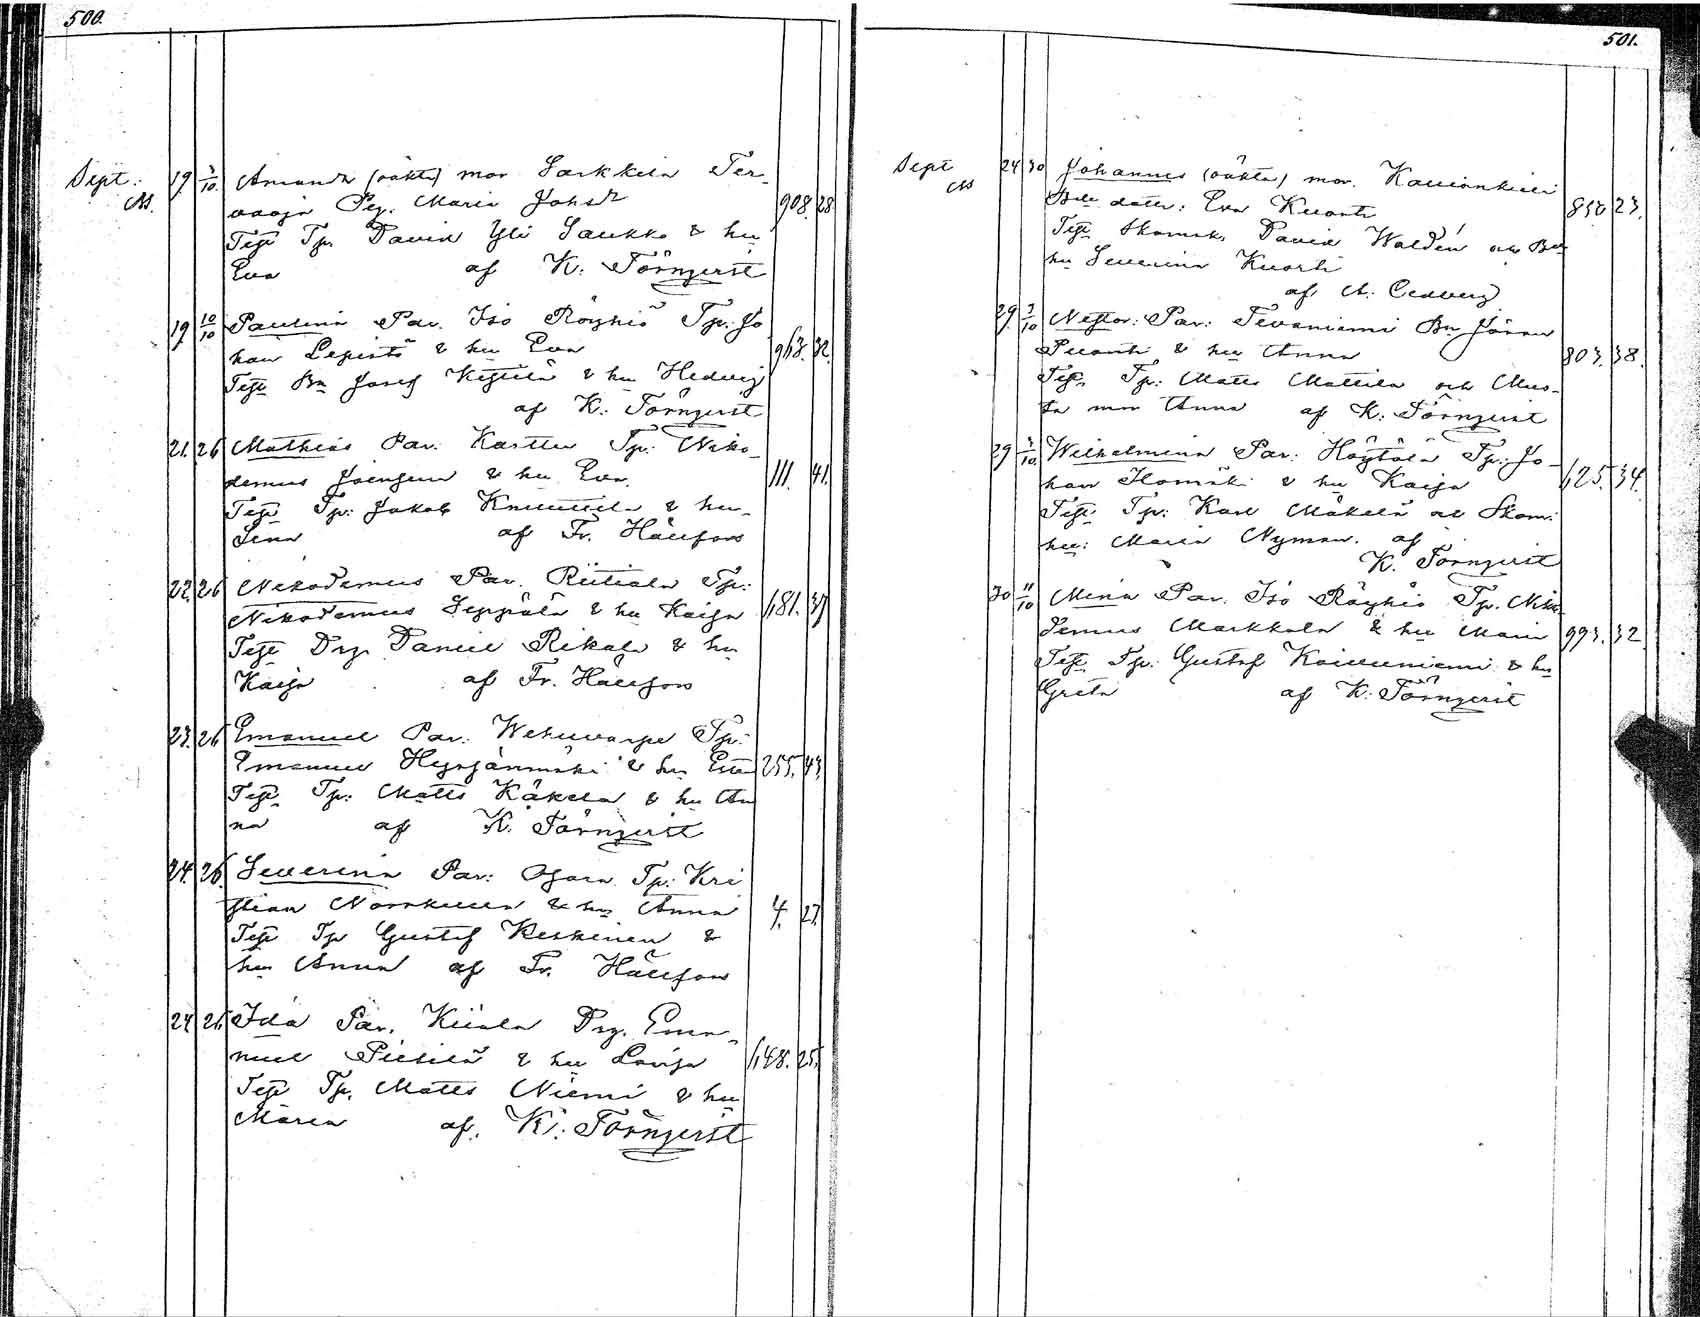 500.
Sept.
19 3/10. Amanda (oäkta) mor Sarkkila Ter-
vaoja Pig. Maria Johsdr 908. 28
Test Tp. David Yli Saukko & hu
Eva af K: Törnqvist
19 10/10 Paulina Par. Iso Röyhiö Tp: Jo
han Lepistö & hu Eva 963. 32.
Test Bn Josef Kestilä & hu Hedvig
af K: Törnqvist
21. 26 Mathias Par: Karttu Tp: Niko-
demus & hu Eva. 111. 41.
Test Tp: Jakob Knuutila & hu
Lena af Fr. Hällfors
22. 26 Nikodemus Par. Riitiala Tp:
Nikodemus Seppälä & hu Kaisa 1,181. 37
Test Drg. Daniel Rikala & hu
Kaisa af Fr. Hällfors
23. 26 Emanuel Par: Wehuvarpe Tp:
Emanuel & hu 255. 43.
Test Tp: Matts Käkelä & hu An
na af K. Törnqvist
24. 26. Severina Par: Ojara Tp: Kri
stian Norrkulla & hu Anna 4. 27.
Test Tp Gustaf Keskinen &
hu Anna af Fr. Hällfors
24 26. Ida Par. Kiiala Drg. Ema-
nuel Pietilä & hu Lovisa 1,148. 25.
Test Tp. Matts Niemi & hu
Maria af. K: Törnqvist
501.
Sept 24 30 Johannes (oäkta) mor.
dotter: Eva Kuorti 850 23.
Test Skomak. David Waldén och Bn
hu Severina Kuorti
af A: Cedberg
29. 3/10 Nestor: Par: Tevaniemi Bn Johan
Puonti & hu Anna 803. 38.
Test Tp: Matts Mattila och Mus-
ta mor Anna af K: Törnqvist
29 3/10. Wilhelmina Par: Höytölä Tp: Jo-
han Ilomäki & hu Kaisa 1,125. 34.
Test Tp: Karl Mäkelä och Skom:
hu: Maria Nyman. af
K. Törnqvist
30 11/10 Mina Par. Iso Röyhiö Tp. Niko
demus Markkola & hu Maria 993. 32.
Test Tp: Gustaf Koivuniemi & hu
Greta af K: Törnqvist